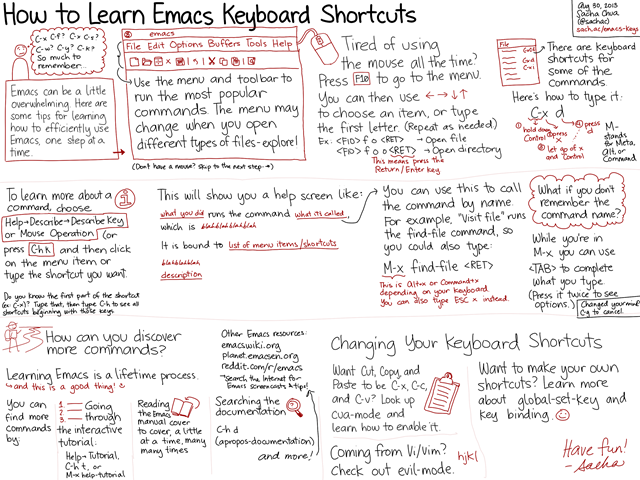 How to Learn Emacs Keyboard Shortcuts
Aug 30, 2013
Sacha Chua
(@sachac)
sach.ac/emacs-keys
C-x C-f? C-x C-s?
C-w? C-y? C-k?
So much to
remember...
Emacs can be a little
overwhelming. Here are
some tips for learning
how to efficiently use
Emacs, one step at a
time.
emacs
File Edit Options Buffers Tools Help
Use the menu and toolbar to
run the most popular
commands. The menu may
change when you open
different types of files-explore!
(Don't have a mouse? Skip to the next step→)
Tired of using
the mouse all the time?
Press F10 to go to the menu.
You can then use ←→↓↑
to choose an item, or type
the first letter. (Repeat as needed)
Ex: <F10> f o <RET> → Open file
<F10> f o o <RET> → Open directory
This means press the
Return/Enter key
File
There are keyboard
shortcuts for
some of the
commands.
Here's how to type it:
C-x d
① hold down
Control
② press
x
③ let go of x
and Control
④ press
d
M-
stands for
Meta,
Alt, or
Command.
To learn more about a
command, choose
Help→Describe→Describe Key
or Mouse Operation (or
press C-h k and then click
on the menu item or
type the shortcut you want.
Do you know the first part of the shortcut
(ex: C-x)? Type that, then type C-h to see all
shortcuts beginning with those keys
This will show you a help screen like:
what you did runs the command what its called
which is blahblahblahblah
It is bound to list of menu items/shortcuts
blahblahblahblah
description
You can use this to call
the command by name.
For example, "Visit file" runs
the find-file command, so
you could also type:
M-x find-file <RET>
This is Alt+x or Command+x
depending on your keyboard.
You can also type ESC x instead.
What if you don't
remember the
command name?
While you're in
M-x you can use
<TAB> to complete
what you type.
(Press it twice to see
options.)
Changed your mind?
C-g to cancel.
How can you discover
more commands?
Learning Emacs is a lifetime process.
and this is a good thing!
You can
find more
commands
by:
1
2
3
Going
through
the interactive
tutorial:
Help→Tutorial,
C-h t, or
M-x help-tutorial
Reading
the Emacs
manual cover
to cover, a little
at a time, many
many times
Other Emacs resources:
emacswiki.org
planet.emacsen.org
reddit.com/r/emacs
Search the Internet for
Emacs screencasts & tips!
Searching the
documentation
C-h d
(apropos-documentation)
and more!
Changing Your Keyboard Shortcuts
Want Cut, Copy, and
Paste to be C-x, C-c,
and C-v? Look up
cua-mode and
learn how to enable it.
Coming from Vi/vim?
Check out evil-mode.
hjkl
Want to make your own
shortcuts? Learn more
about global-set-key and
key binding.
Have fun!
- Sacha